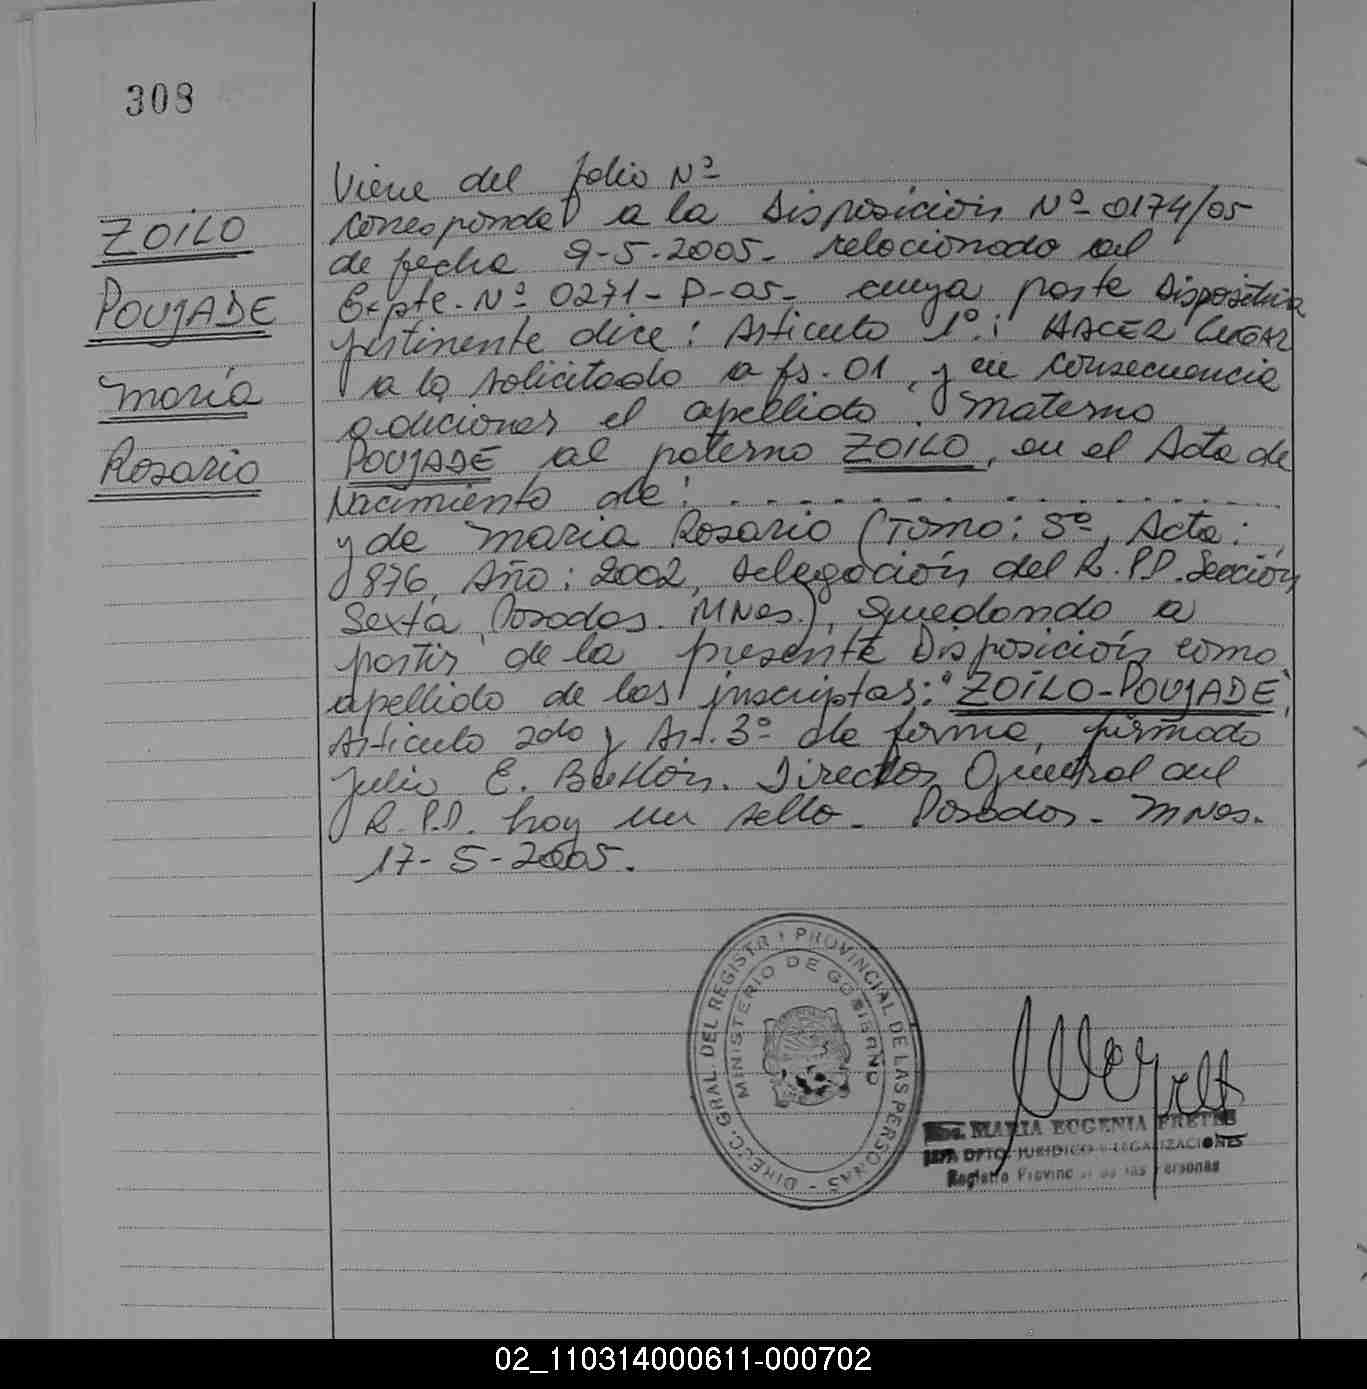 308
ZOILO
POUJADE
María
Rosario
Viene del folio Nº
corresponde a la Disposición Nº 0174/05
de fecha 9-5-2005- relacionado al
Expte. Nº 0271-P-05- cuya parte Dispositiva
pertinente dice: Artículo 1º: HACER LUGAR
a lo solicitado a fs. 01, y en consecuencia
adicionar el apellido materno
POUJADE al paterno ZOILO, en el Acta de
Nacimiento de:
y de María Rosario (Tomo: 5º, Acta:
876, Año: 2002, Delegación del R.P.P. Sección
Sexta, Posadas. MNes.), quedando a
partir de la presente Disposición como
apellido de las inscriptas: "ZOILO-POUJADE",
Artículo 2do y Art. 3º de forma, firmado
Julio E. Director General del
R.P.P. hay un sello- Posadas- MNes.
17-5-2005.
DIRECC. GRAL. DEL REGISTRO PROVINCIAL DE LAS PERSONAS -
MINISTERIO DE GOBIERNO
MARIA EUGENIA FRETES
DPTO. JURIDICO LEGALIZACIONES
Registro Provincial de las Personas
02_110314000611-000702